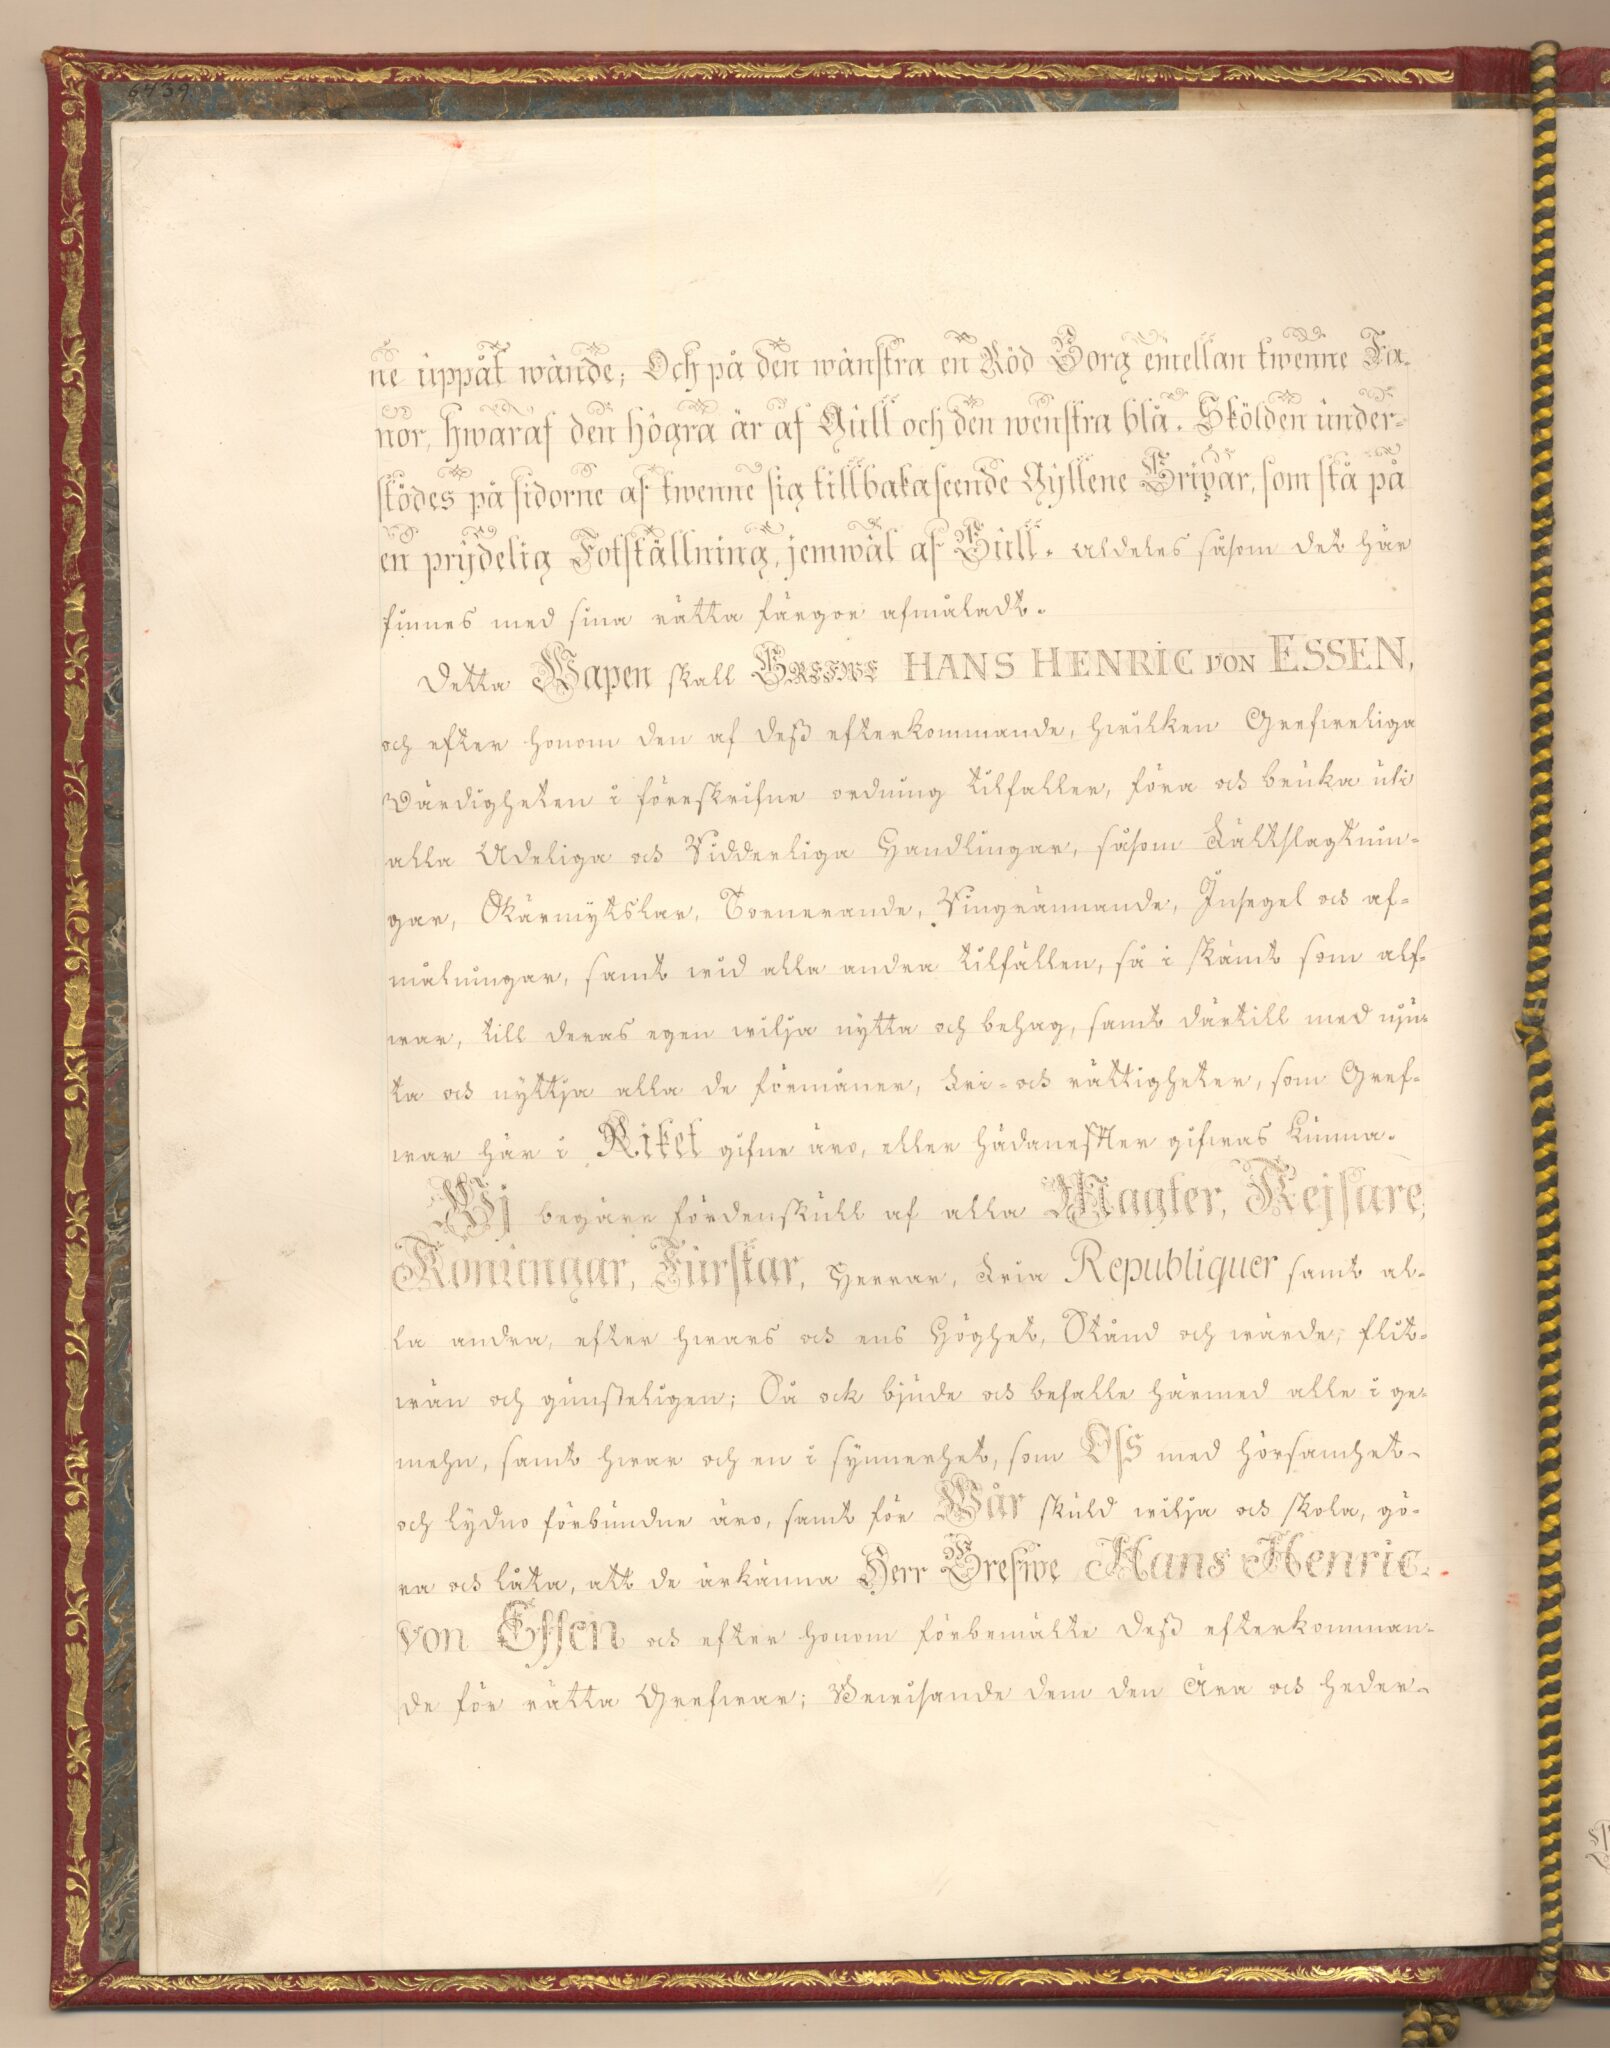 6439
ne uppåt wände; Och på den wänstra en Röd Borg emellan twenne Fa-
nor, hwaraf den högra är af Gull och den wenstra blå. Skölden under-
stödes på sidorne af twenne sig tillbakaseende Gyllene Gripar, som stå på
en prydelig Fotställning, jemwäl af Gull. Aldeles såsom det här
finnes med sina rätta färgor afmåladt.
Detta Wapen skall GREFWE HANS HENRIC VON ESSEN,
och efter honom den af deß efterkommande, hwilken Grefweliga
Värdigheten i föreskrifne ordning tilfaller, föra och bruka uti
alla Adeliga och Ridderliga Handlingar, såsom Fältslagtnin-
gar, Skärmytslar, Tornerande, Ringrännande, Insegel och af-
målningar, samt wid alla andra tilfällen, så i skämt som alf-
war, till deras egen wilja nytta och behag, samt därtill med nju-
ta och nyttja alla de förmåner, fri- och rättigheter, som Gref-
war här i Riket gifne äro, eller hädanefter gifwas kunna.
Wj begäre fördenskull af alla Magter, Kejsare,
Konungar, Furstar, Herrar, Fria Republiquer samt al-
la andra, efter hwars och ens Höghet, Stånd och wärde, flit-
wän och gunsteligen; Så ock bjude och befalle härmed alle i ge-
mehn, samt hwar och en i synnerhet, som Oss med hörsamhet
och lydno förbundne äro, samt för Wår skuld wilja och skola, gö-
ra och låta, att de ärkänna Herr Grefwe Hans Henric
von Essen och efter honom förbemälte deß efterkomman-
de för rätta Grefwar; Bewisande dem den Ära och heder